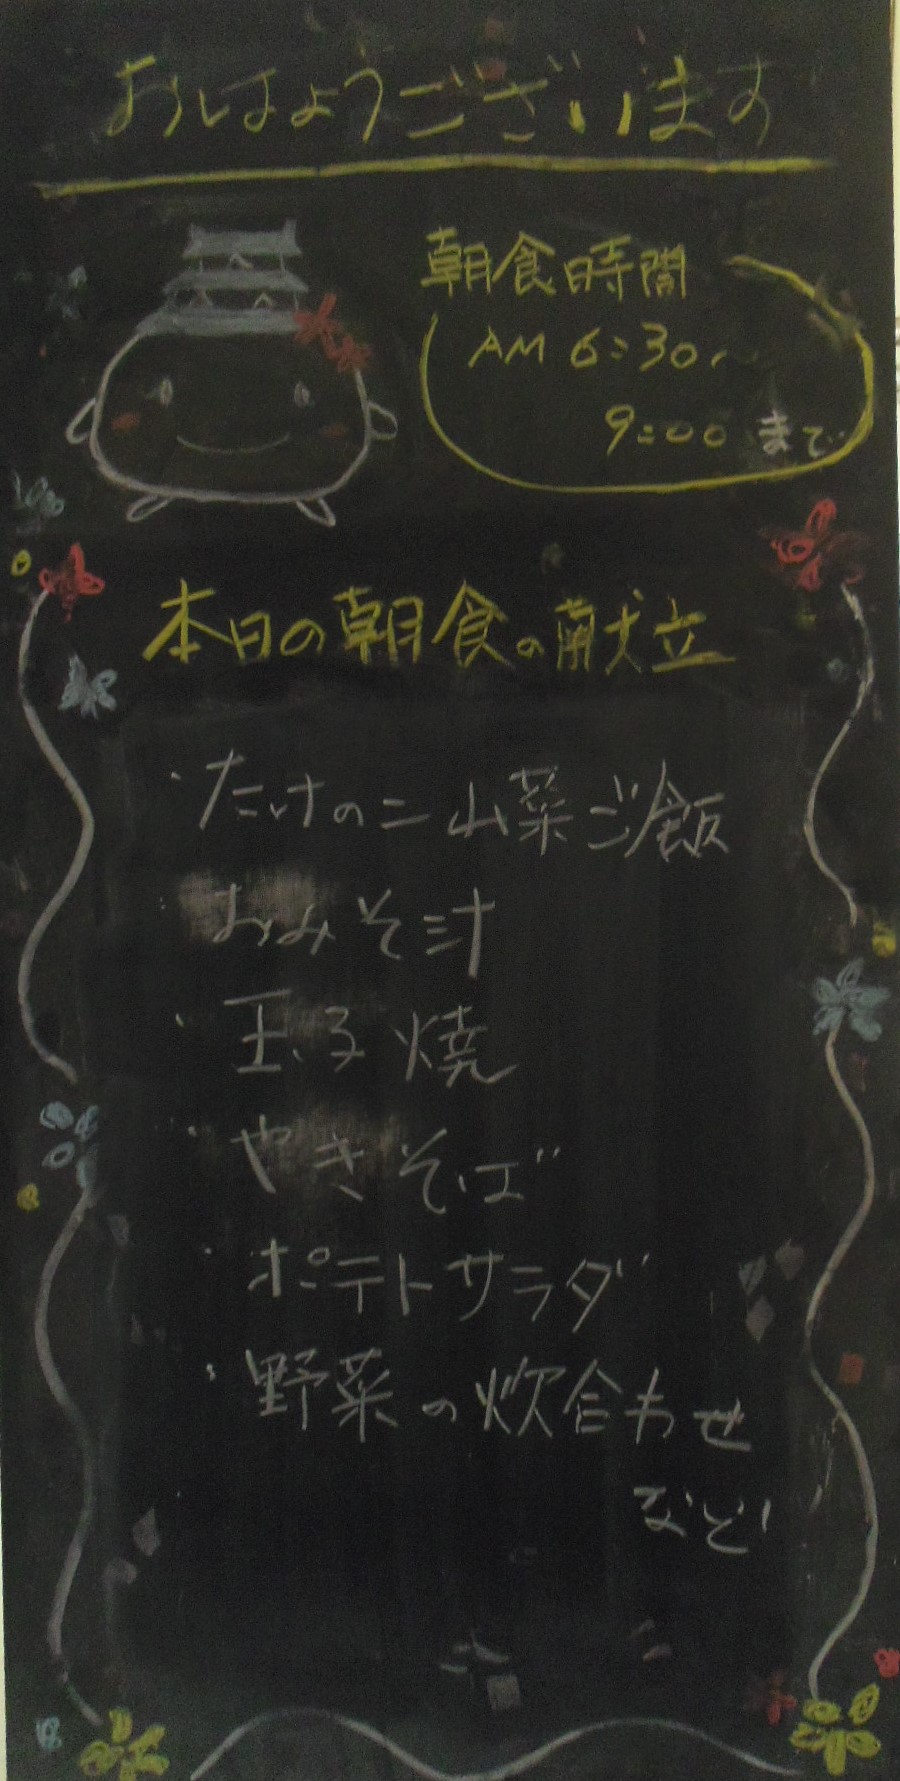 おはようございます
朝食時間
AM 6:30〜
9:00 まで
本日の朝食の献立
・たけのこ山菜ご飯
・おみそ汁
・玉子焼
・やきそば
・ポテトサラダ
・野菜の炊合わせ
など